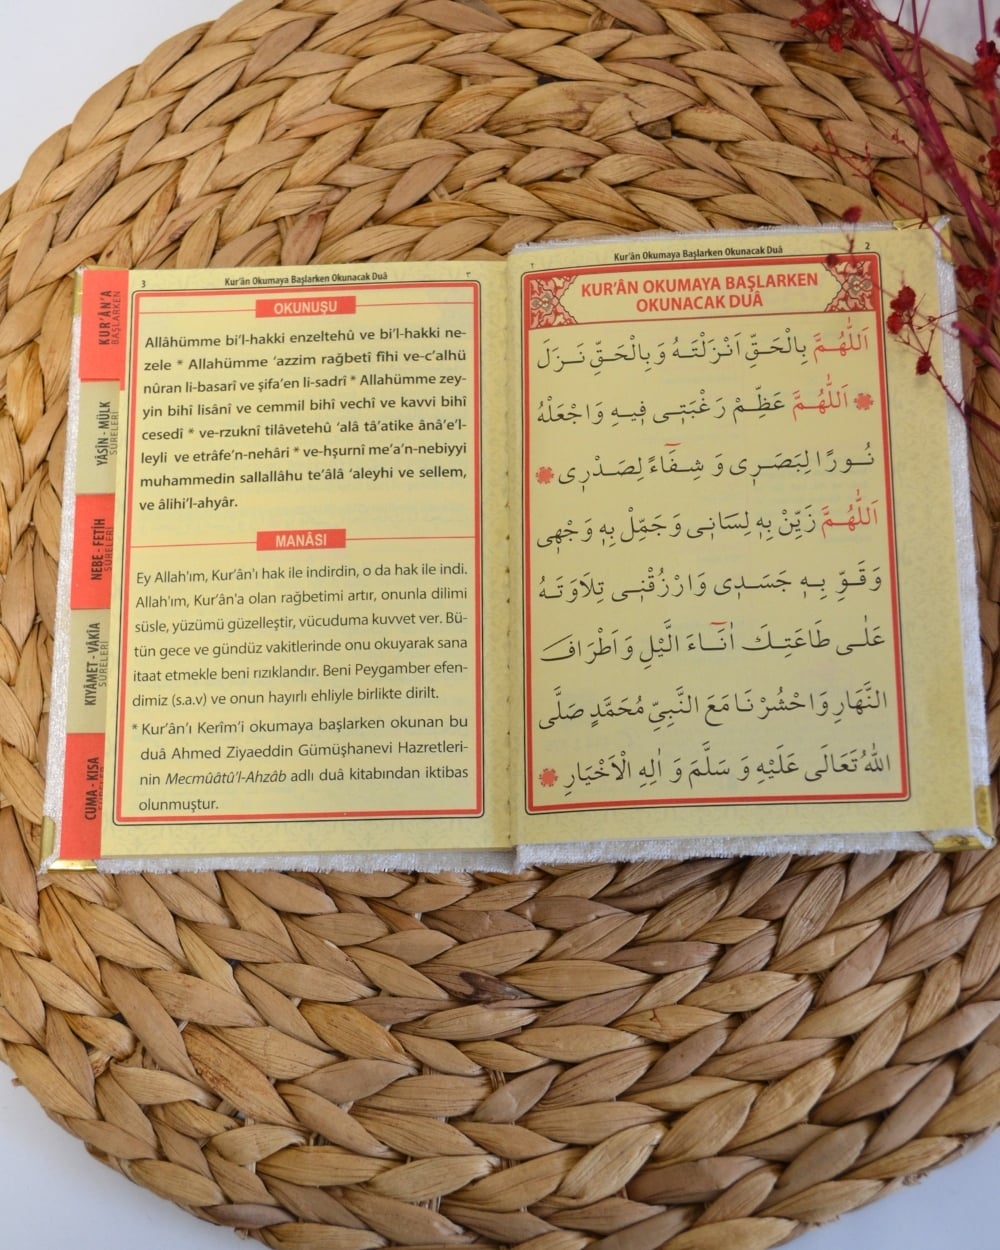 Kur'ân Okumaya Başlarken Okunacak Duâ
2
٢
KUR'ÂN OKUMAYA BAŞLARKEN
OKUNACAK DUÂ
اَللّٰهُمَّ بِالْحَقِّ اَنْزَلْتَهُ وَبِالْحَقِّ نَزَلَ
❋ اَللّٰهُمَّ عَظِّمْ رَغْبَتِى فِيهِ وَاجْعَلْهُ
نُورًا لِبَصَرِى وَ شِفَٓاءً لِصَدْرِى ❋
اَللّٰهُمَّ زَيِّنْ بِهِ لِسَانِى وَجَمِّلْ بِهِ وَجْهِى
وَقَوِّ بِهِ جَسَدِى وَارْزُقْنِى تِلَاوَتَهُ
عَلٰى طَاعَتِكَ اٰنَٓاءَ الَّيْلِ وَاَطْرَافَ
النَّهَارِ وَاحْشُرْنَا مَعَ النَّبِىِّ مُحَمَّدٍ صَلَّى
اللّٰهُ تَعَالَى عَلَيْهِ وَ سَلَّمَ وَ اٰلِهِ الْاَخْيَارِ ❋
3
Kur'ân Okumaya Başlarken Okunacak Duâ
٣
OKUNUŞU
Allâhümme bi'l-hakki enzeltehû ve bi'l-hakki ne-
zele * Allahümme 'azzim rağbetî fîhi ve-c'alhü
nûran li-basarî ve şifa'en li-sadrî * Allahümme zey-
yin bihî lisânî ve cemmil bihî vechî ve kavvi bihî
cesedî * ve-rzuknî tilâvetehû 'alâ tâ'atike ânâ'e'l-
leyli ve etrâfe'n-nehâri * ve-hşurnî me'a'n-nebiyyi
muhammedin sallallâhu te'âlâ 'aleyhi ve sellem,
ve âlihi'l-ahyâr.
MANÂSI
Ey Allah'ım, Kur'ân'ı hak ile indirdin, o da hak ile indi.
Allah'ım, Kur'ân'a olan rağbetimi artır, onunla dilimi
süsle, yüzümü güzelleştir, vücuduma kuvvet ver. Bü-
tün gece ve gündüz vakitlerinde onu okuyarak sana
itaat etmekle beni rızıklandır. Beni Peygamber efen-
dimiz (s.a.v) ve onun hayırlı ehliyle birlikte dirilt.
* Kur'ân'ı Kerîm'i okumaya başlarken okunan bu
duâ Ahmed Ziyaeddin Gümüşhanevi Hazretleri-
nin Mecmûâtü'l-Ahzâb adlı duâ kitabından iktibas
olunmuştur.
KUR'ÂN'A
BAŞLARKEN
YÂSİN - MÜLK
SÛRELERİ
NEBE - FETİH
SÛRELERİ
KIYÂMET - VÂKIA
SÛRELERİ
CUMA - KISA